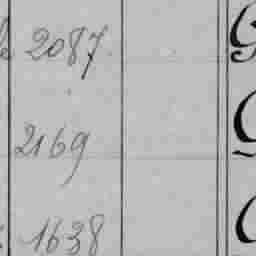 2087.
2169
1638